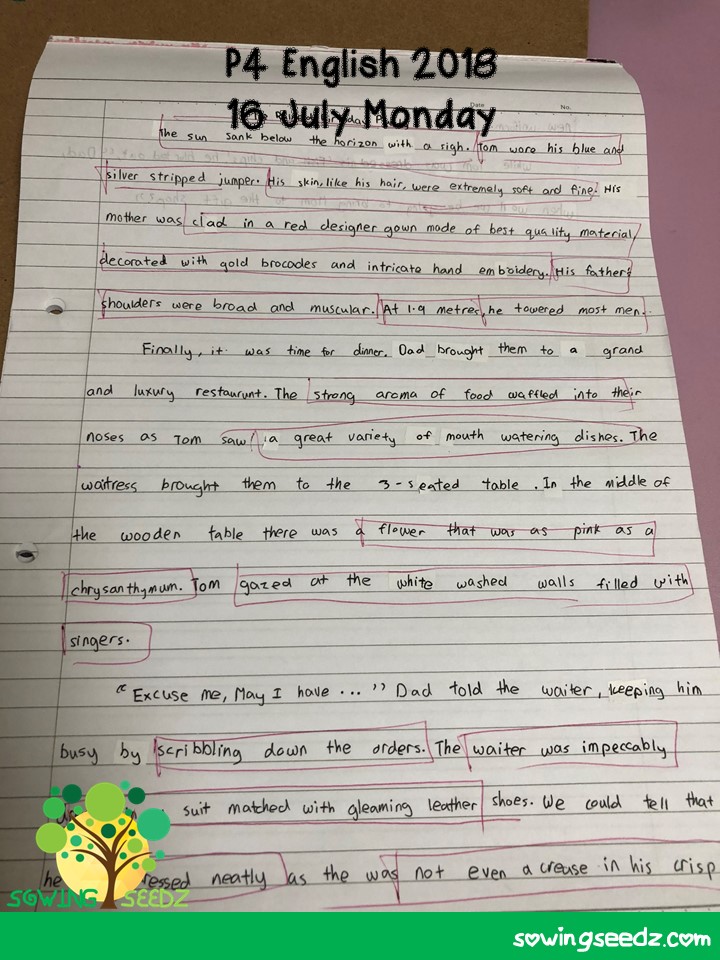 P4 English 2018
16 July Monday
Date
No.
the sun sank below the horizon with a sigh. Tom wore his blue and
silver stripped jumper. His skin, like his hair, were extremely soft and fine. His
mother was clad in a red designer gown made of best quality material,
decorated with gold brocodes and intricate hand emboidery. His father's
shoulders were broad and muscular. At 1.9 metres, he towered most men.
Finally, it was time for dinner. Dad brought them to a grand
and luxury restaurunt. The strong aroma of food waffled into their
noses as Tom saw a great variety of mouth watering dishes. The
waitress brought them to the 3-seated table. In the middle of
the wooden table there was a flower that was as pink as a
chrysanthymum. Tom gazed at the white washed walls filled with
singers.
"Excuse me, May I have ..." Dad told the waiter, keeping him
busy by scribbling down the orders. The waiter was impeccably
suit matched with gleaming leather shoes. We could tell that
he neatly as the was not even a crease in his crisp
SOWING SEEDZ
sowingseedz.com